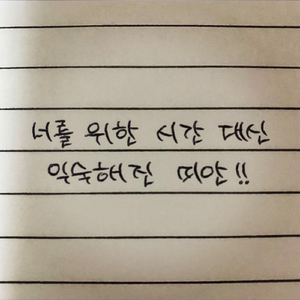 너를 위한 시간 대신
익숙해진 띠안!!